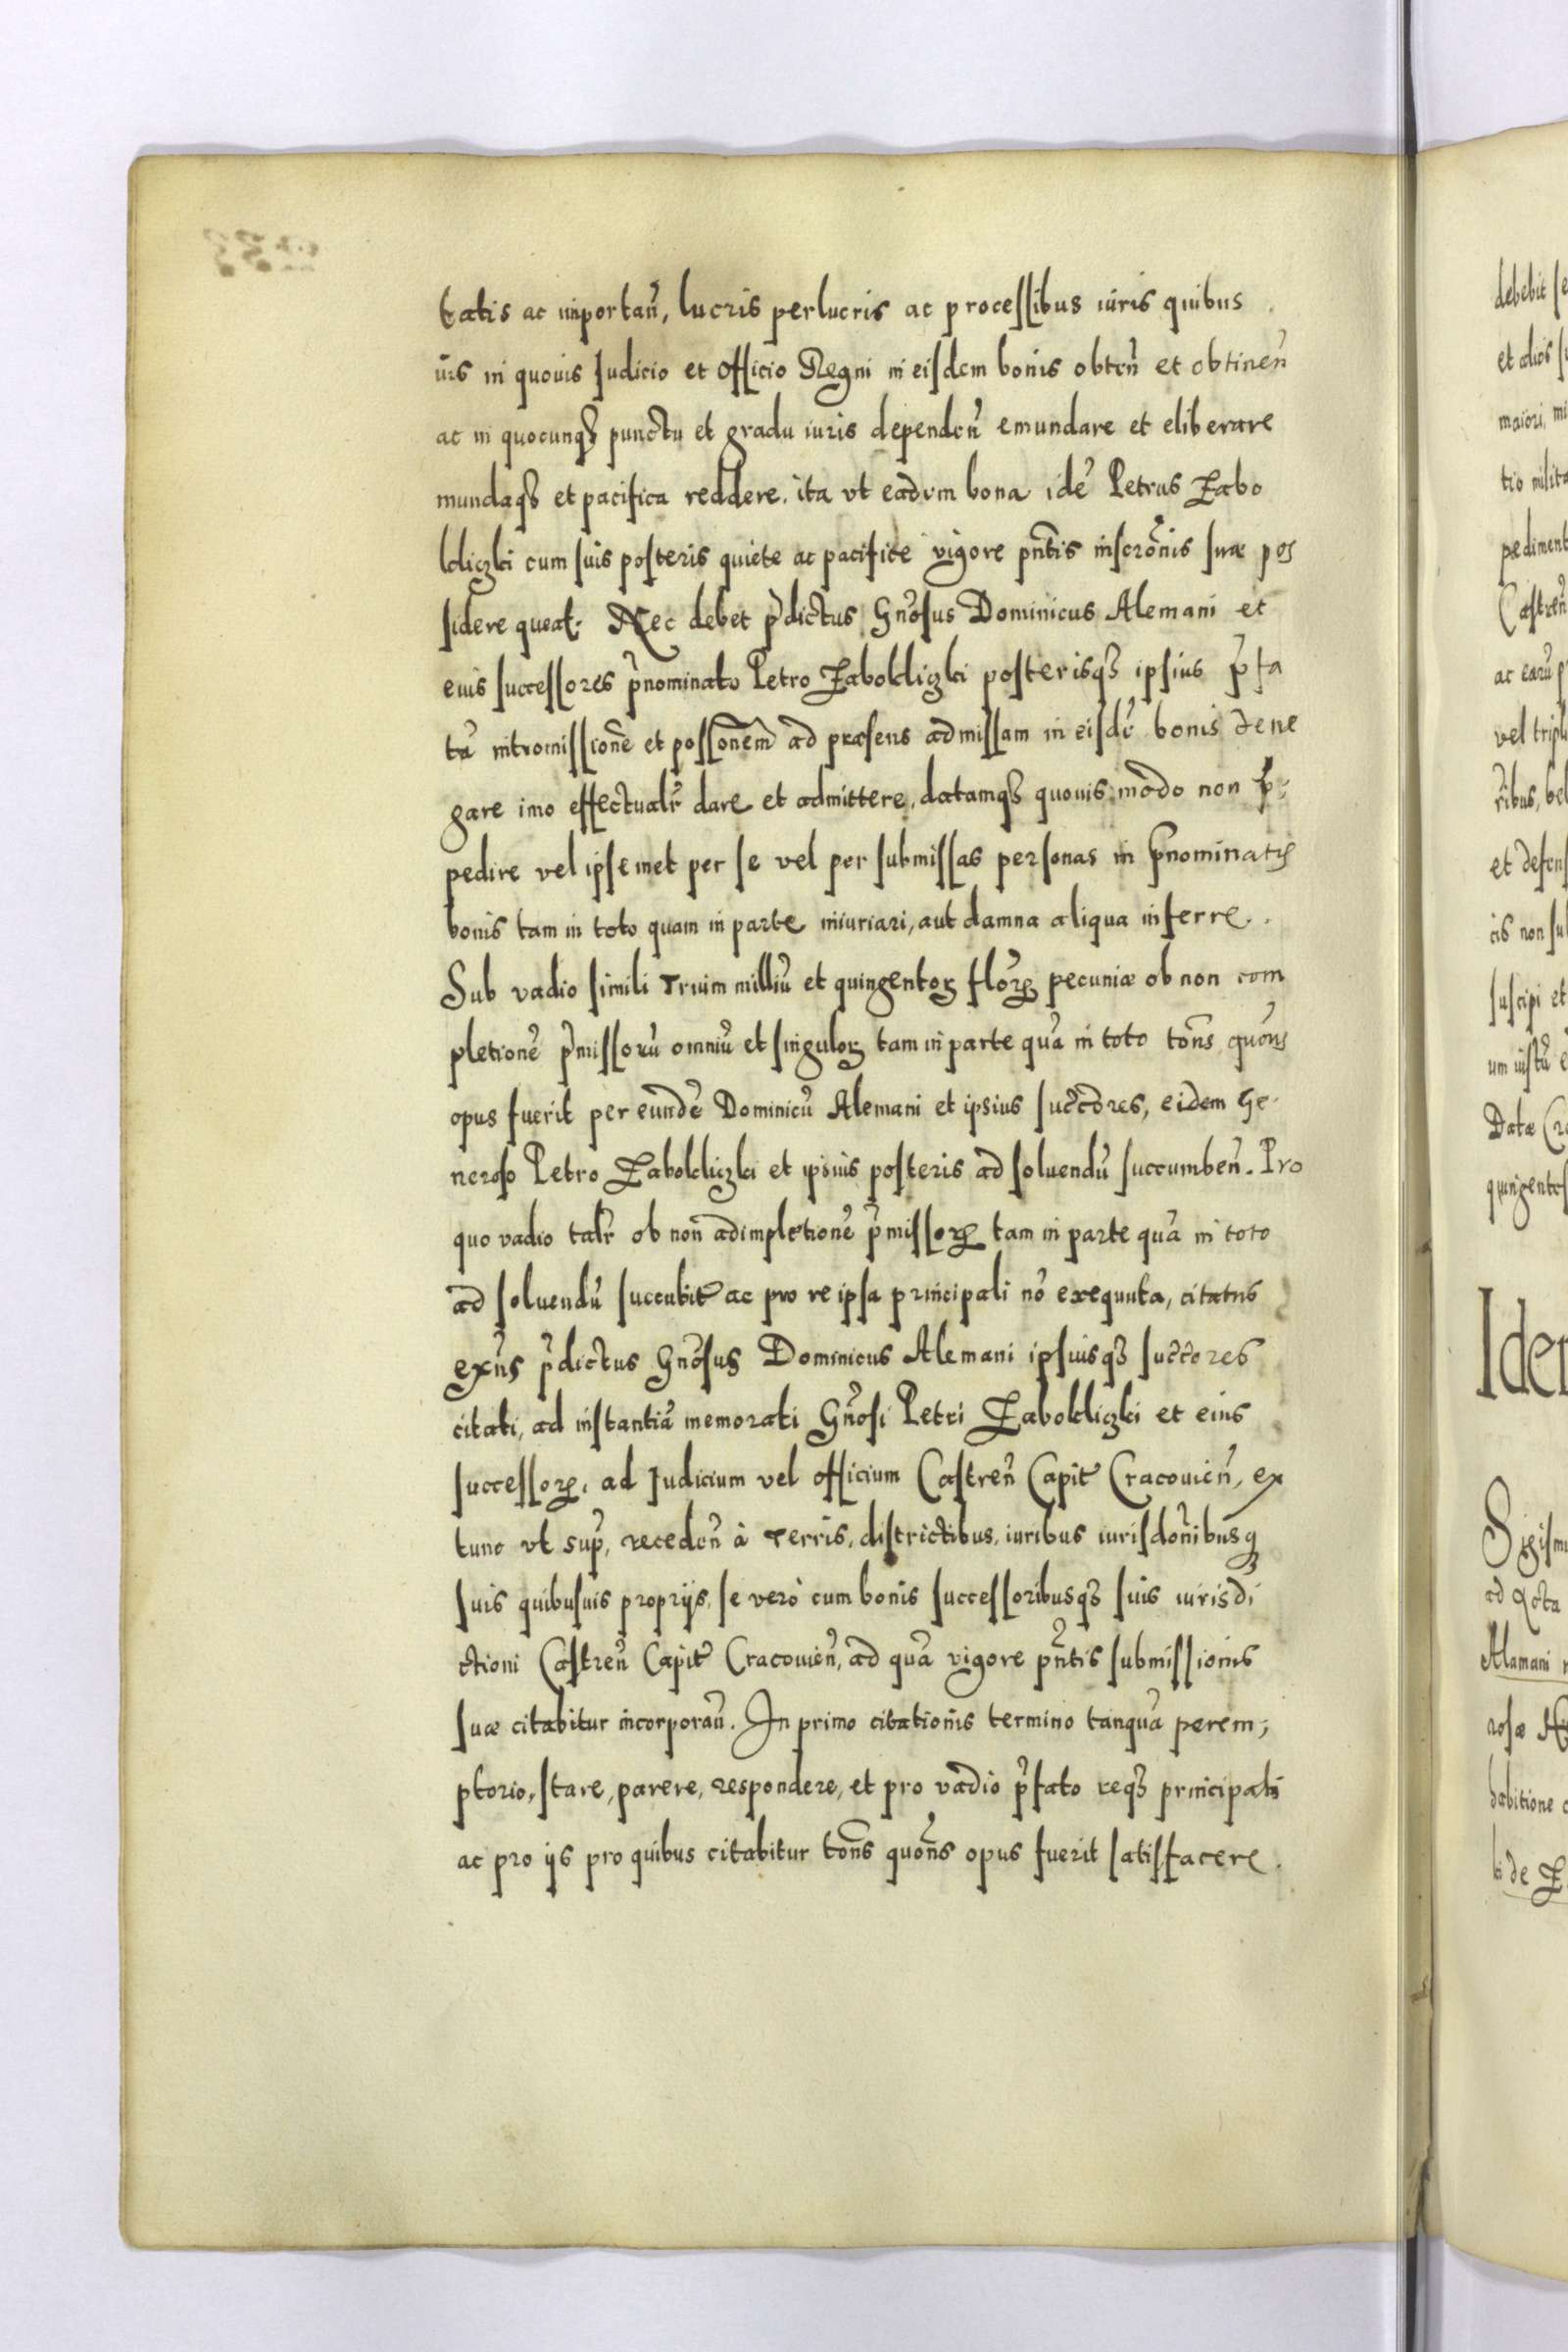 tatis ac importan̄, lucris perlucris ac processibus iuris quibus
uis in quouis Iudicio et Officio Regni in eisdem bonis obten̄ et obtinen̄
ac in quocunqȝ punctu et gradu iuris dependen̄ emundare et eliberare
mundaqȝ et pacifica reddere, ita vt eadem bona idē Petrus Zabo
kliczki cum suis posteris quiete ac pacifice vigore pn̄tis inscrōnis suæ pos
sidere queat. Nec debet p̄dictus Gn̄osus Dominicus Alemani et
eius successores p̄nominato Petro Zabokliczki posterisqȝ ipsius p̄fa
tā intromissionē et possōnem ad præsens admissam in eisdē bonis dene
gare imo effectualr̄ dare et admittere, datamqȝ quouis modo non
pedire vel ipsemet per se vel per submissas personas in p̄nominatis
bonis tam in toto quam in parte iniuriari, aut damna aliqua inferre.
Sub vadio simili Trium milliū et quingentoꝝ floꝝ pecuniæ ob non com
pletionē p̄missorū omniū et singuloꝝ tam in parte quā in toto tōns quōns
opus fuerit per eundē Dominicū Alemani et ipsius succōres, eidem Ge
neroso Petro Zabokliczki et ipsius posteris ad soluendū succumben̄. Pro
quo vadio talr̄ ob non adimpletionē p̄missoꝝ tam in parte quā in toto
ad soluendū succubit̄ ac pro re ipsa principali nō exequuta, citatus
exn̄s p̄dictus Gn̄osus Dominicus Alemani ipsiusqȝ succores
citati, ad instantiā memorati Gn̄osi Petri Zabokliczki et eius
successoꝝ, ad Iudicium vel officium Castren̄ Capit̄ Cracouien̄, ex
tunc vt sup̄, receden̄ à Terris, districtibus, iuribus iurisdōnibusqȝ
suis quibusuis proprijs, se verò cum bonis successoribusqȝ suis iurisdi
ctioni Castren̄ Capit̄ Cracouien̄, ad quā vigore pn̄tis submissionis
suæ citabitur incorporan̄. In primo citationis termino tanquā perem;
ptorio, stare, parere, respondere, et pro vadio p̄fato reqȝ principali
ac pro ijs pro quibus citabitur tōns quōns opus fuerit satisfacere.
debebit
et alios
maiori, mi
tio milita
pediment
Castren̄
ac earū
vel tripl
ribus, bel
et defens
cis non
suscipi et
um iustū
Datæ Cr
quingentes
Idem
Sigism
ad
Alamani
rosæ
habitione
ki de Z